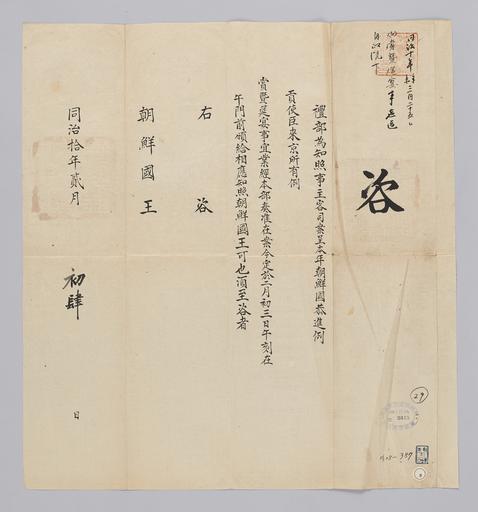 同治十年辛未三月二十五日
咨
禮部為知照事主客司案呈本年朝鮮國恭進例
貢使臣來京所有例
賞暨筵宴事宜業經本部奏准在案今定於二月初三日午刻在
午門前頒給相應知照朝鮮國王可也須至咨者
右咨
朝鮮國王
同治拾年貳月初肆日
29